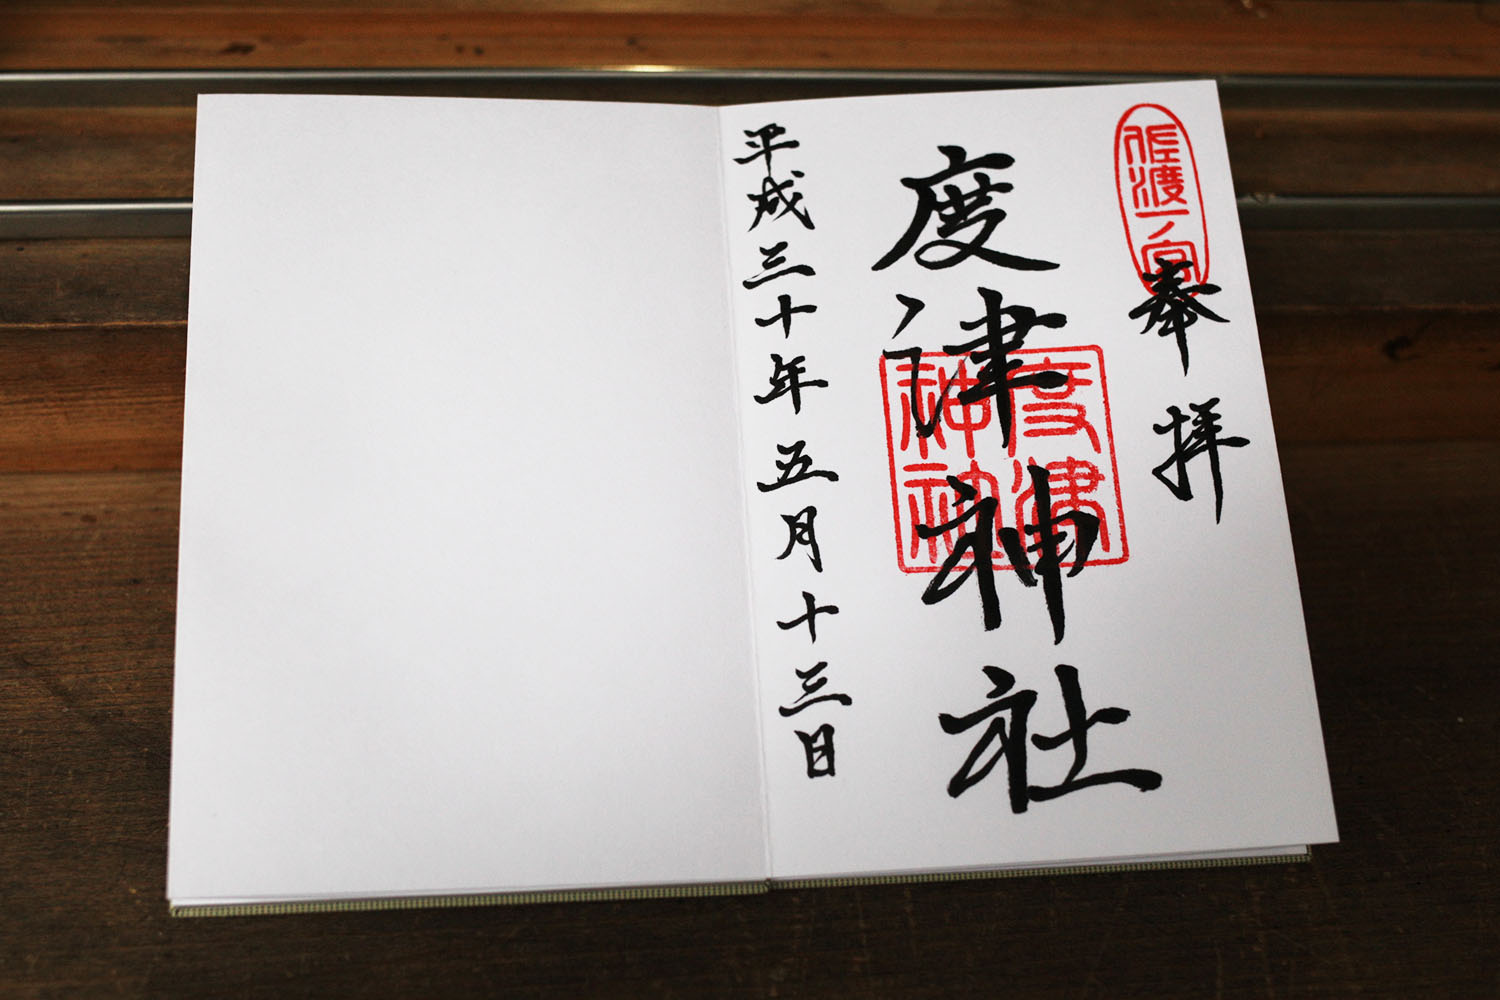 佐渡一ノ宮
奉拝
度津神社
度津
神社
平成三十年五月十三日